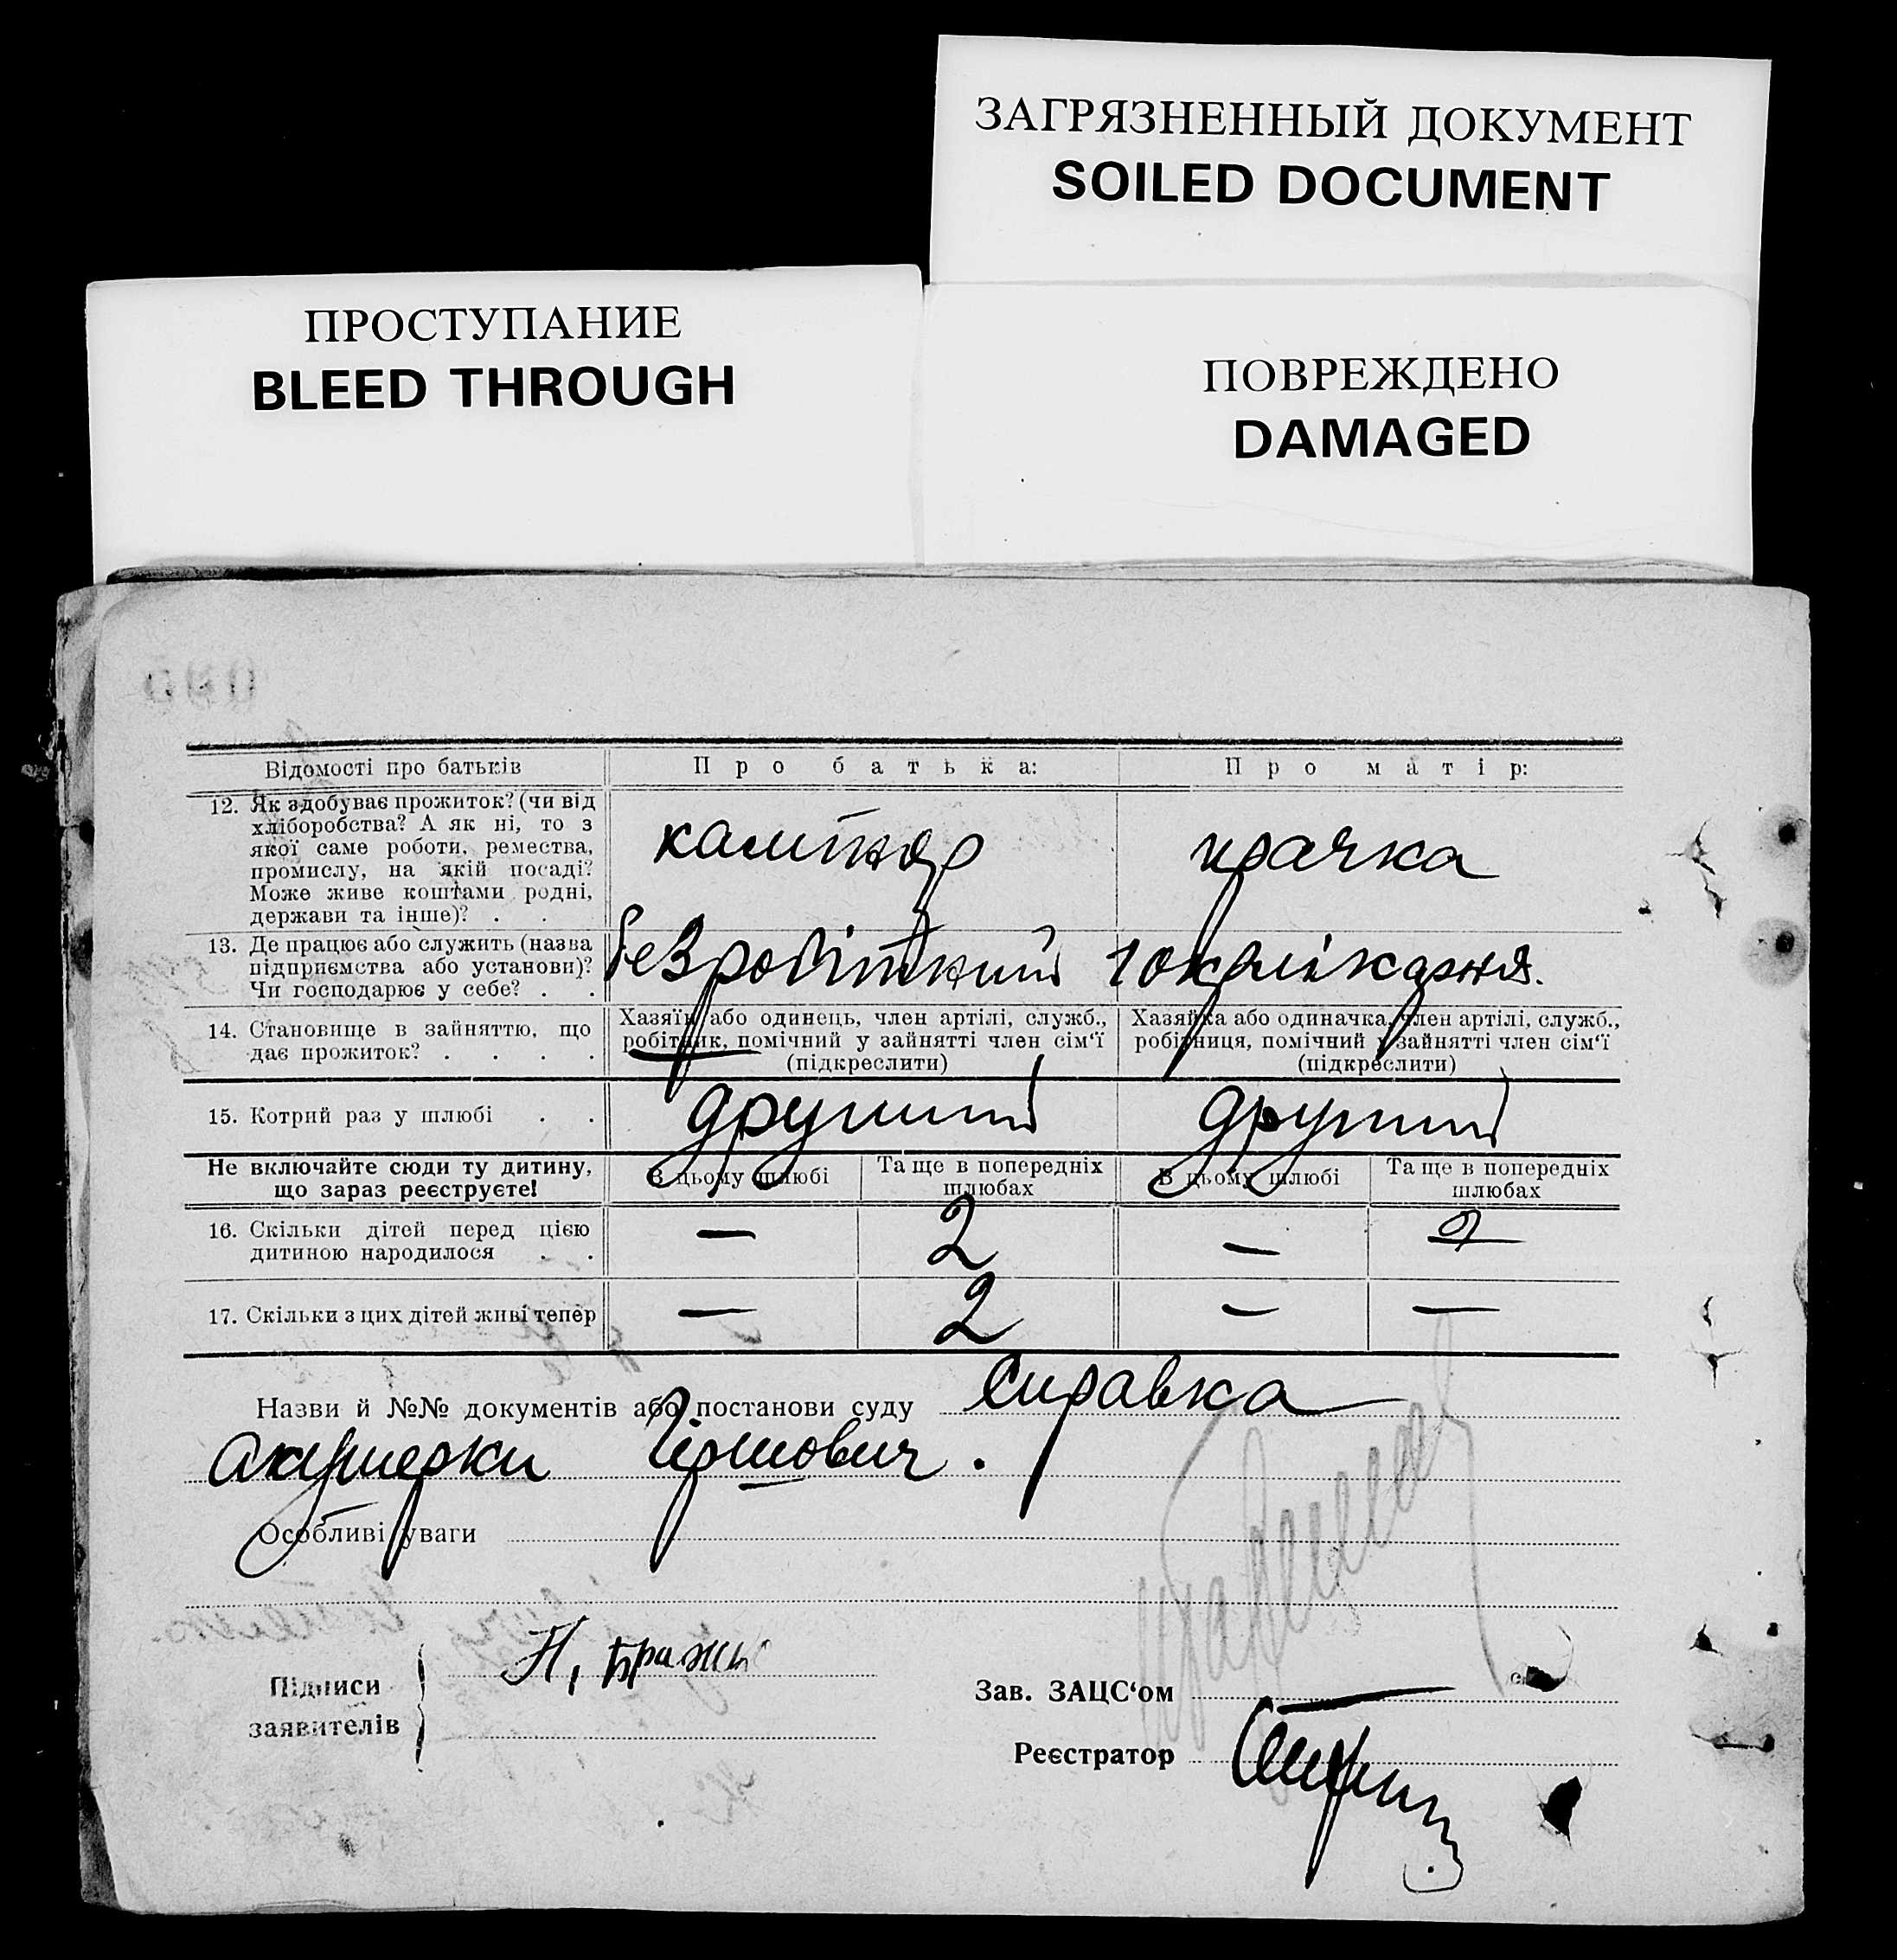 ЗАГРЯЗНЕННЫЙ ДОКУМЕНТ
SOILED DOCUMENT
ПРОСТУПАНИЕ
BLEED THROUGH
ПОВРЕЖДЕНО
DAMAGED
Відомості про батьків Про батька: Про матір:
12. Як здобуває прожиток? (чи від
хліборобства? А як ні, то з
якої саме роботи, ремества,
промислу, на якій посаді?
Може живе коштами родні,
держави та інше)? . .
прачка
13. Де працює або служить (назва
підприємства або установи)?
Чи господарює у себе? . .
безробітний
14. Становище в зайняттю, що
дає прожиток? . . . .
Хазяїн або одинець, член артілі, служб.,
робітник, помічний у зайнятті член сім'ї
(підкреслити)
Хазяйка або одиначка, член артілі, служб.,
робітниця, помічний у зайнятті член сім'ї
(підкреслити)
15. Котрий раз у шлюбі . . другий другий
Не включайте сюди ту дитину,
що зараз реєструєте!
В цьому шлюбі
Та ще в попередніх
шлюбах
В цьому шлюбі
Та ще в попередніх
шлюбах
16. Скільки дітей перед цією
дитиною народилося . .
— 2 — 2
17. Скільки з цих дітей живі тепер — 2 — —
Назви й №№ документів або постанови суду справка
акушерки Гершович.
Особливі уваги
Підписи
заявителів
Н,
Зав. ЗАЦС'ом
Реєстратор